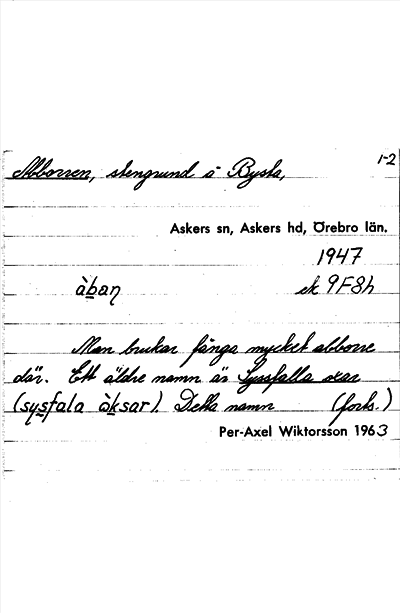 1-2
Abborren, stengrund i Bysta,
Askers sn, Askers hd, Örebro län.
1947
àban ek 9F8h
Man brukar fånga mycket abborre
där. Ett äldre namn är Syssfalla oxar
(sysfala òksar). Detta namn (forts.)
Per-Axel Wiktorsson 1963